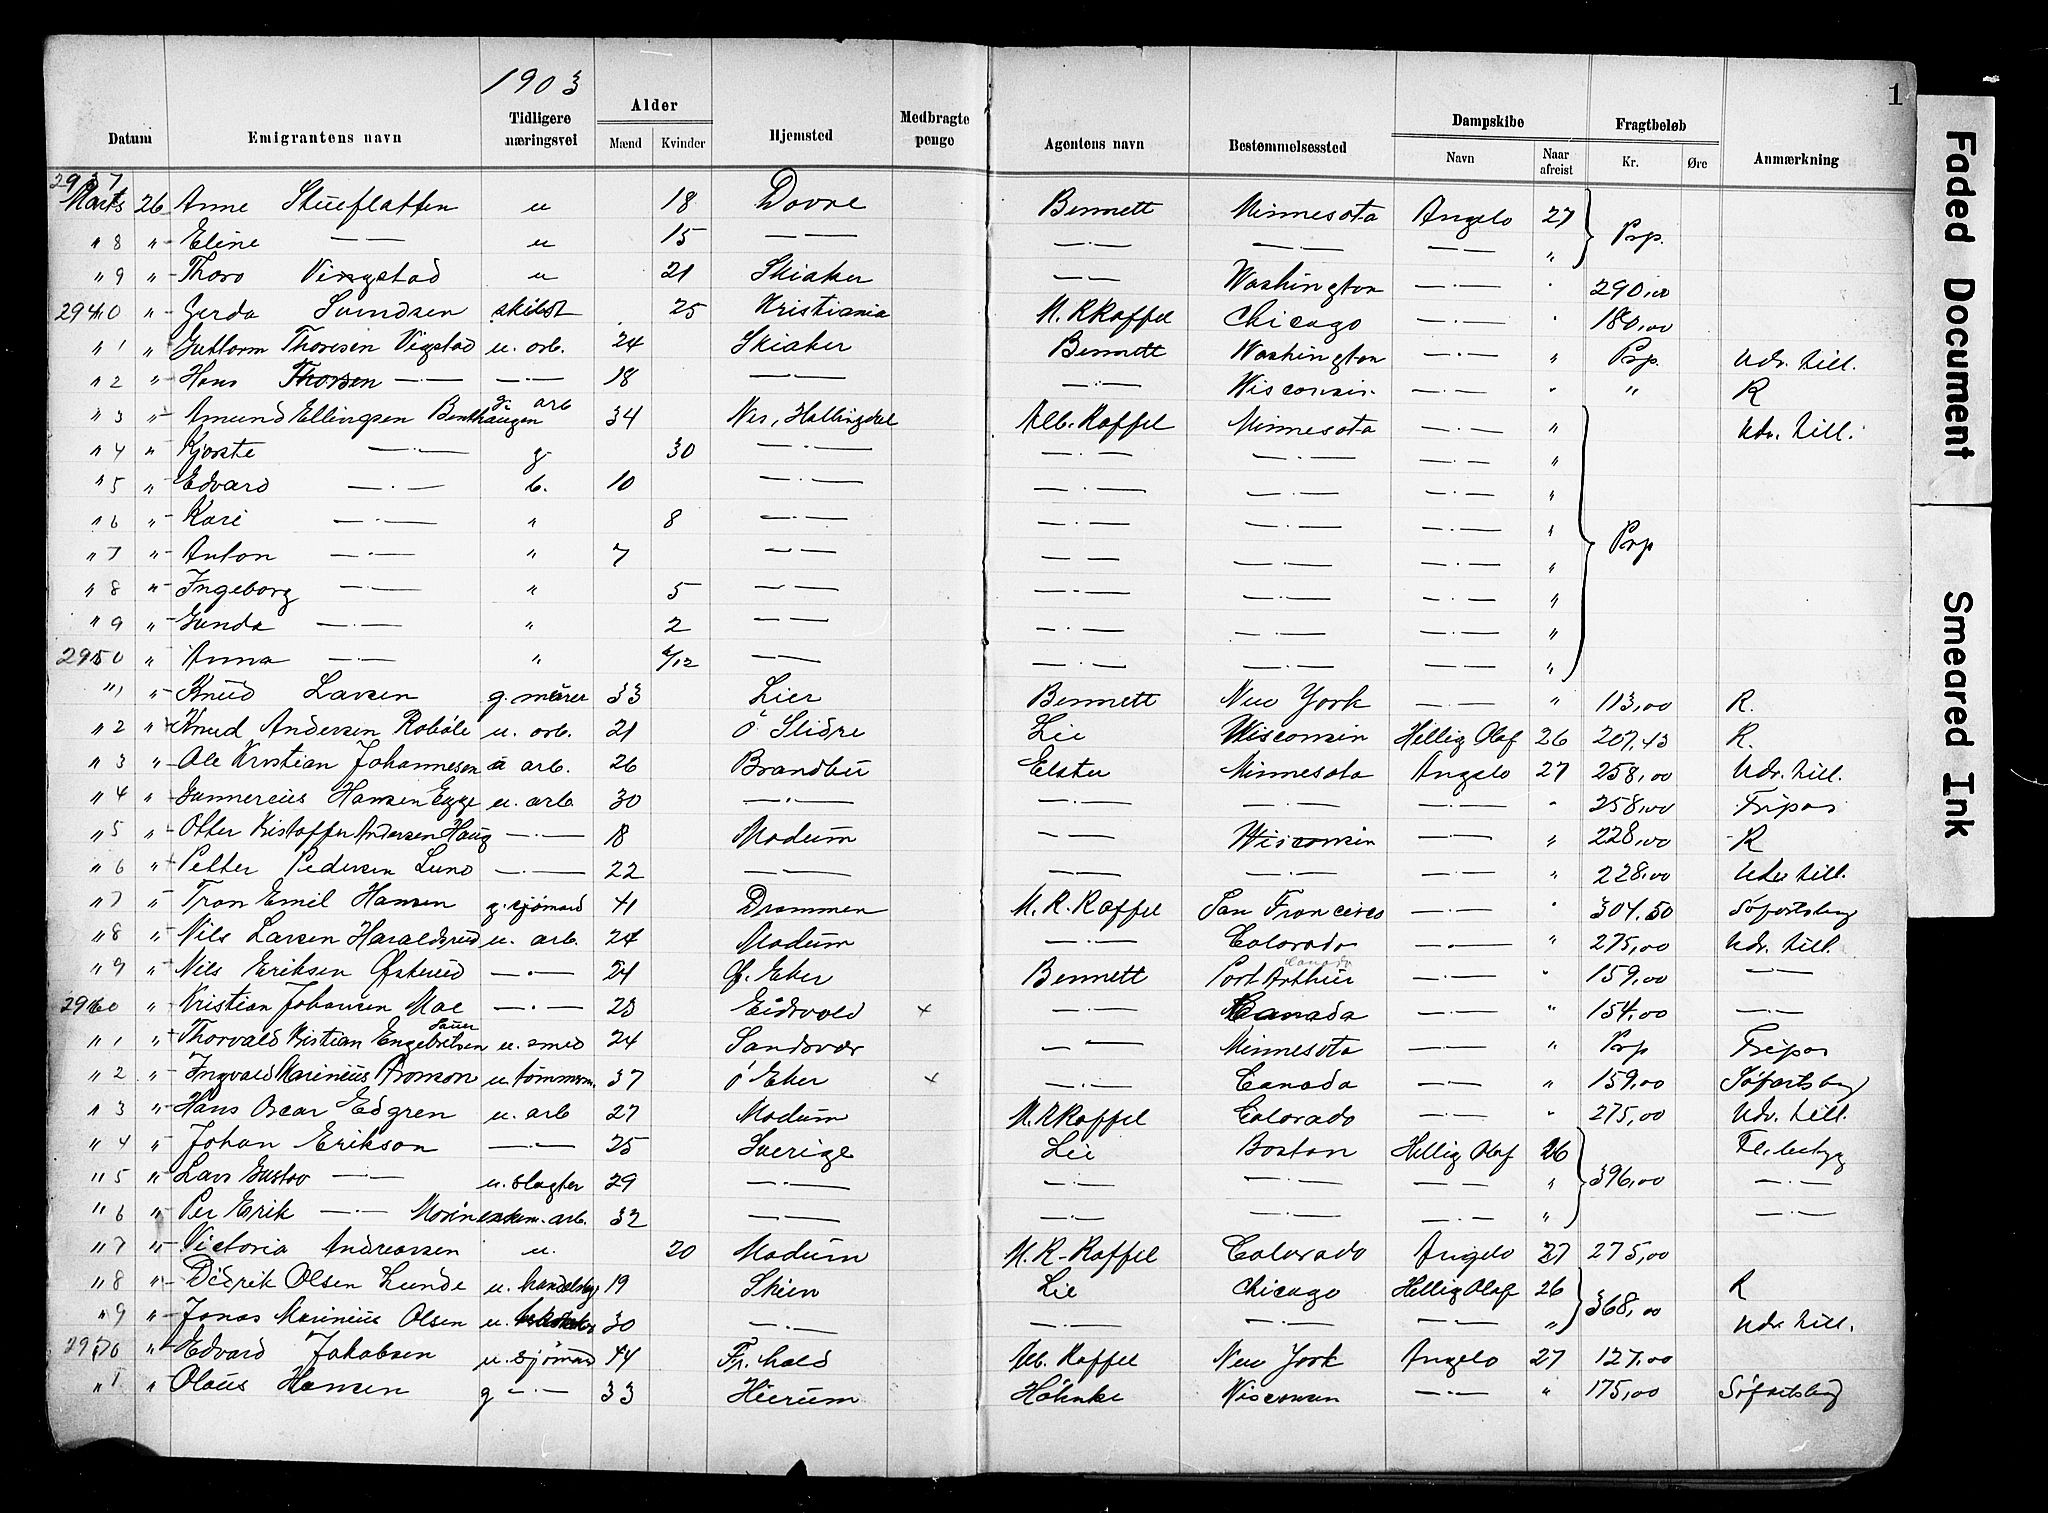 1903
1
Datum Emigrantens navn Tidligere næringsvei Alder Mænd Kvinder Hjemsted Medbragte penge Agentens navn Bestemmelsessted Dampskibe Navn Naar afreist Fragtbeløb Kr. Øre Anmærkning
2937
Marts 26 Anne Stueflatten u 18 Dovre Bennett Minnesota Angelo 27 Prp.
" 8 " Eline — — u 15 — — — — — — — — "
" 9 " Thora Vingstad u 21 Skiaker — — Washington — — " 290,00
2940 " Gerda Svendsen skildt 25 Kristiania M. R Raffel Chicago — — " 180,00
" 1 " Guttorm Thoresen Vigstad u. arb. 24 Skiaker Bennett Washington — — " Prp. Udv. till.
" 2 " Hans Thorsen — — — — 18 — — — — Wisconsin — — " " R
" 3 " Amund Ellingsen Benthaugen g. arb 34 Nes, Hallingdal Alb. Raffel Minnesota — — " Udv. till.
" 4 " Kjerste — — g 30 — — — — — — — — "
" 5 " Edvard — — b. 10 — — — — — — — — "
" 6 " Kari — — " 8 — — — — — — — — "
" 7 " Anton — — " 7 — — — — — — — — " Prp
" 8 " Ingeborg — — " 5 — — — — — — — — "
" 9 " Gunda — — " 2 — — — — — — — — "
2950 " Anna — — " /12 — — — — — — — — "
" 1 " Knud Larsen g. murer 33 Lier Bennett New York — — " 113,00 R.
" 2 " Knud Andersen Robøle u. arb. 21 Ö Slidre Lie Wisconsin Hellig Olaf 26 207,43 R.
" 3 " Ole Kristian Johannesen u arb. 26 Brandbu Elster Minnesota Angelo 27 258,00 Udv. till.
" 4 " Gunnereius Hansen Egge u. arb 30 — — — — — — — — " 258,00 Fripas
" 5 " Otter Kristoffer Andersen Haug — — 18 Modum — — Wisconsin — — " 228,00 R
" 6 " Petter Pedersen Lund — — 22 — — — — — — — — " 228,00 Udv till.
" 7 " Tran Emil Hansen g. sjömand 41 Drammen M. R. Raffel San Francisco — — " 304.50 Søfartsbog
" 8 " Nils Larsen Haraldsrud u. arb. 24 Modum — — Colorado — — " 275,00 Udv. till.
" 9 " Nils Eriksen Østerud — — 24 Ø. Eker Bennett Port Arthur Canada — — " 159,00 — —
2960 " Kristian Johansen Moe — — 28 Eidsvold + — — Canada — — " 154,00 — —
" 1 " Thorvald Kristian Engebretsen u. smed 24 Sandsvær — — Minnesota — — " Prp Fripas
" 2 " Ingvald Marinius Aronson u. tömmerm. 37 Ö Eker + — — Canada — — " 159,00 Søfartsbog
" 3 " Hans Oscar Edgren u. arb 27 Modum M. R Raffel Colorado — — " 275,00 Udv. till.
" 4 " Johan Erikson — — 25 Sverige Lie Boston Hellig Olaf 26
" 5 " Lars Gustav — — u. slagter 29 — — — — — — — — " 396,00 — —
" 6 " Per Erik — — 32 — — — — — — — — " — —
" 7 " Victoria Andreassen u. 20 Modum M. R. Raffel Colorado Angelo 27 275,00
" 8 " Didrik Olsen Lunde u. handelsbg 19 Skien Lie Chicago Hellig Olaf 26 368,00 R
" 9 " Jonas Marinius Olsen u. 30 — — — — — — — — " Udv till.
2970 " Edvard Jakobsen u. sjömand 44 Fr. hald Alb. Raffel New York Angelo 27 127,00
" 1 " Olaus Hansen g — — 33 Hurum Höhnke Wisconsin — — " 175,00 Søfartsbog
Faded Document
Smeared Ink